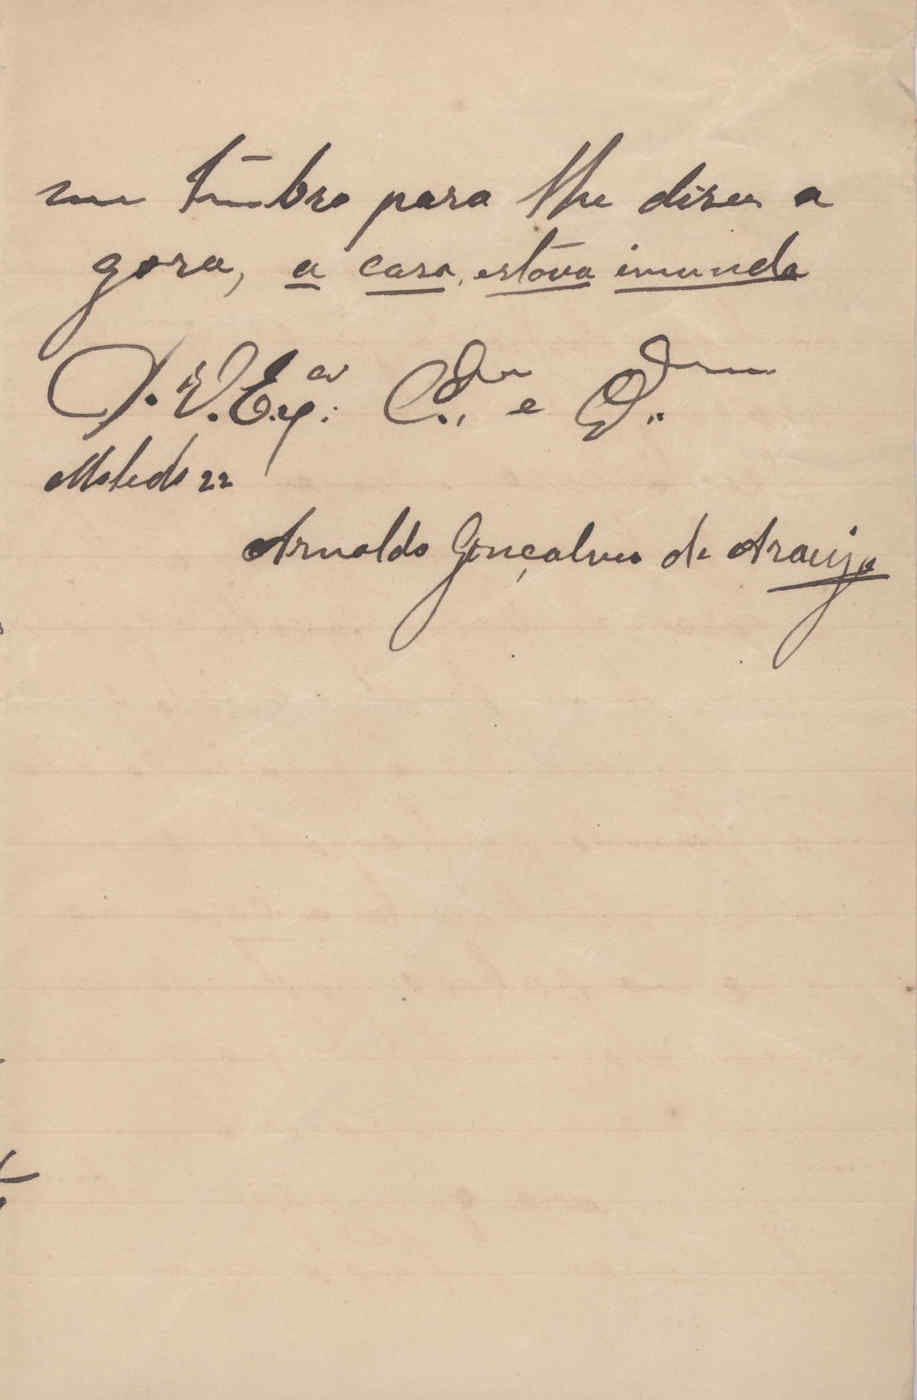 me lembro para lhe diser a
gora, a casa estava imunda
D. V. Exª: C.do e O.
Moledo 22
Arnaldo Gonçalves de Araujo